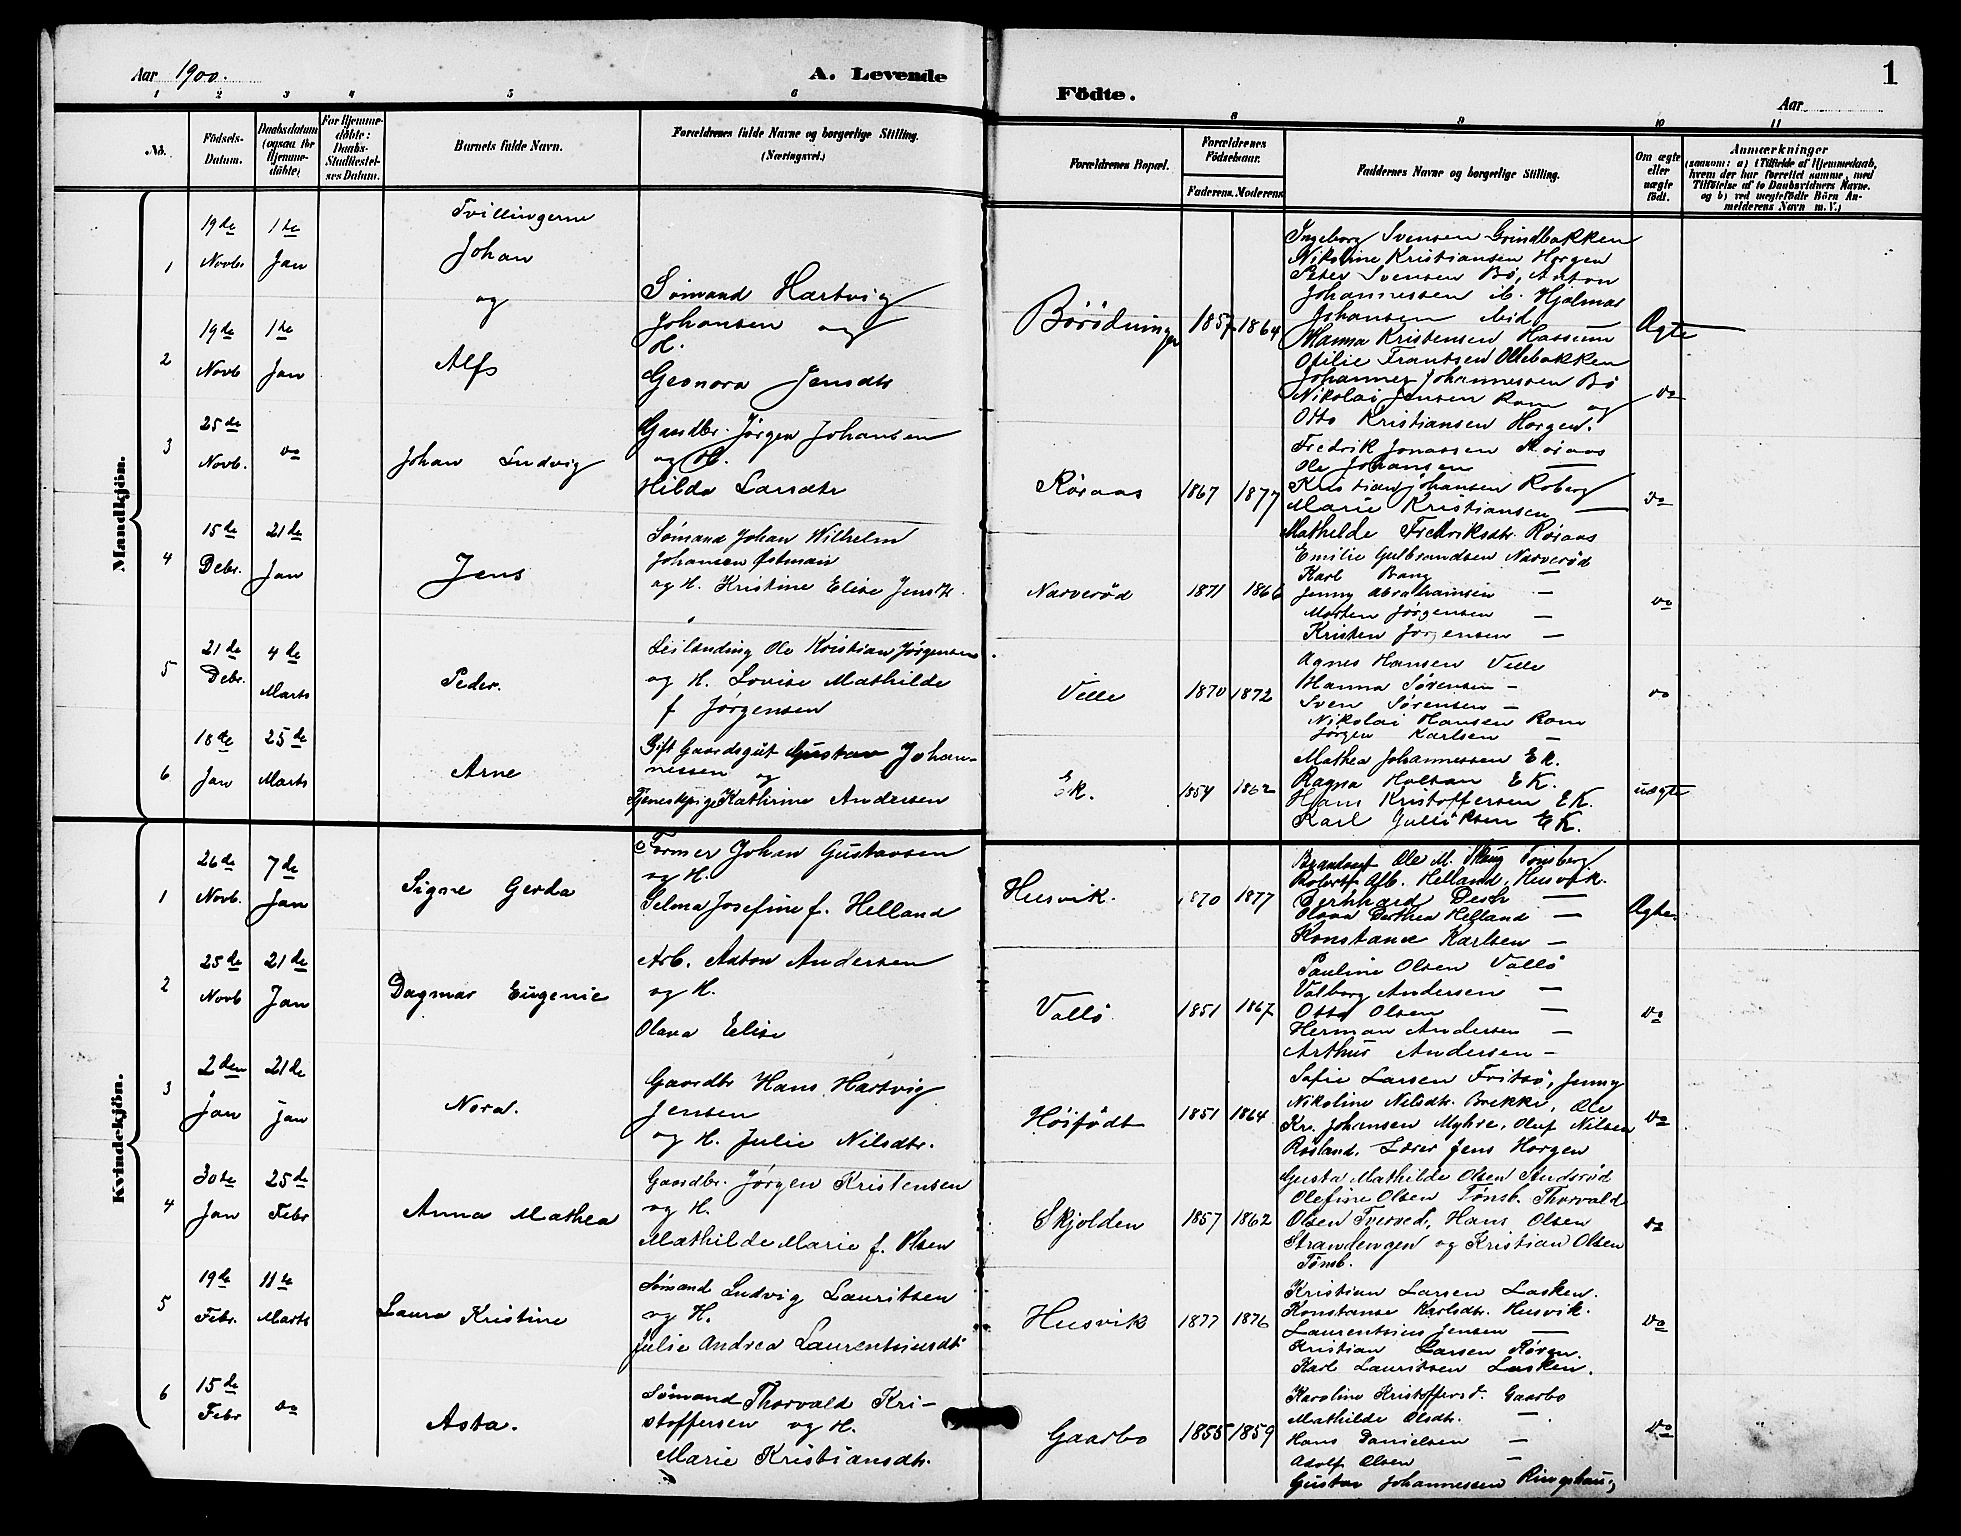 Aar 1900.
A. Levende
Födte.
Aar
1
1 2 3 4 5 6 8 9 10 11
No.
Födsels-Datum.
Daabsdatum (ogsaa for Hjemmedöbte)
For Hjemmedöbte: Daabs-Stadfæstelses Datum.
Barnets fulde Navn.
Forældrenes fulde Navne og borgerlige Stilling.
(Næringsvei.)
Forældrenes Bopæl.
Forældrenes Födselsaar.
Faderens. Moderens.
Faddernes Navne og borgerlige Stilling.
Om ægte eller uægte født.
Anmærkninger
(saasom: a) i Tilfælde af Hjemmedaab, hvem der har forrettet samme, med Tilføielse af to Daabsvidners Navne. og b) ved uægtefødte Börn Anmelderens Navn m. V.)
Mandkjön.
1
19de Novbr.
1ste Jan
Tvillingerne
Johan
og
2
19de Novb
1ste Jan
Alf
Sømand Hartvig
Johansen og
H.
Jensdtr
1857 1864
Ingeborg Svensen Grindbakken
Nikoline Kristiansen Horgen
Peter Svensen Bø, Anton
Johannessen ib. Hjalmar
Johansen ibid
Hanna Kristensen Hassum
Otilie Frantsen Ollebakken
Johannes Johannessen Bø
Nikolai Jensen Rom og
Otto Kristiansen Horgen.
Ægte
do
3
25de Novb.
do
Johan Ludvig
Gaardbr. Jørgen Johansen
og H.
Hilda Larsdtr
Røraas
1867 1877
Fredrik Jonassen Røraas
Ole Johansen —
Kristian Johansen Roberg
Marie Kristiansen —
Mathilde Fredriksdtr. Røraas
do
4
15de Debr.
21de Jan
Jens
Sømand Johan Wilhelm
Johansen Østman
og H. Kristine Elise Jens
Narverød
1871 1866
Emilie Gulbrandsen Narverød
Karl Bang —
Jenny Abrahamsen —
Morten Jørgensen —
Kristen Jørgensen —
do
5
21de Debr.
4de Marts
Peder.
Leilænding Ole Kristian Jørgensen
og H. Lovise Mathilde
f Jørgensen
Velle
1870 1872
Agnes Hansen Velle
Hanna Sørensen —
Sven Sørensen —
Nikolai Hansen Rom
Jørgen Karlsen —
do
6
18de Jan
25de Marts
Arne
Gift Gaardsgut Gustav Johan-
nessen og
Tjenestepige Kathrine Andersen
Ek.
1854 1862
Mathea Johannessen Ek.
Ragna Holtan EK.
Hans Kristoffersen EK.
Karl Jullöksen EK.
uægte
Kvindekjön.
1
26de Novb.
7de Jan
Signe Gerda
Former Johan Gustavsen
og H.
Selma Josefine f. Helland
Husvik.
1870 1877
Ole M. Skaug Tønsberg
Robert Helland, Husvik.
Bernhard Desch —
Olava Dorthea Helland —
Konstance Karlsen —
Ægte
2
25de Novb
21de Jan
Dagmar Eugenie
Arb. Anton Andersen
og H.
Olava Elise
Vallö.
1851 1867
Pauline Olsen Vallö
Valborg Andersen —
Otto Olsen —
Herman Andersen —
Arthur Andersen —
do
3
2den Jan
21de Jan
Nora.
Gaardbr Hans Hartvig
Jensen
og H. Julie Nilsdtr.
Höifödt
1851 1864
Sofie Larsen Fritsö, Jenny
Nikoline Nilsdtr. Brekke, Ole
Kr. Johansen Myhre, Oluf Nilsen
Røsland. Lærer Jens Horgen
do
4
30te Jan
25de Febr
Anna Mathea
Gaardbr. Jørgen Kristensen
og H.
Mathilde Marie f. Olsen
Skjolden
1857 1862
Gusta Mathilde Olsen
Olefine Olsen Tønsb. Thorvald
Olsen Tverved, Hans Olsen
Strandengen og Kristian Olsen
Tønsb.
do
5
19de Febr.
11te Marts
Laura Kristine
Sömand Ludvig Lauritsen
og H.
Julie Andrea Laurentiusdtr
Husvik
1877 1876
Kristian Larsen Lasken.
Konstanse Karlsdtr. Husvik.
Laurentsius Jensen —
Kristian Larsen Røren.
Karl Lauritsen Lasken.
do
6
15de Febr
do
Asta.
Sömand Thorvald Kri-
stoffersen og H.
Marie Kristiansdtr.
Gaarbo
1855 1859
Karoline Kristoffersd. Gaarbo
Mathilde Olsdtr. —
Hans Danielsen —
Adolf Olsen —
Gustav Johannessen Ringshaug
do